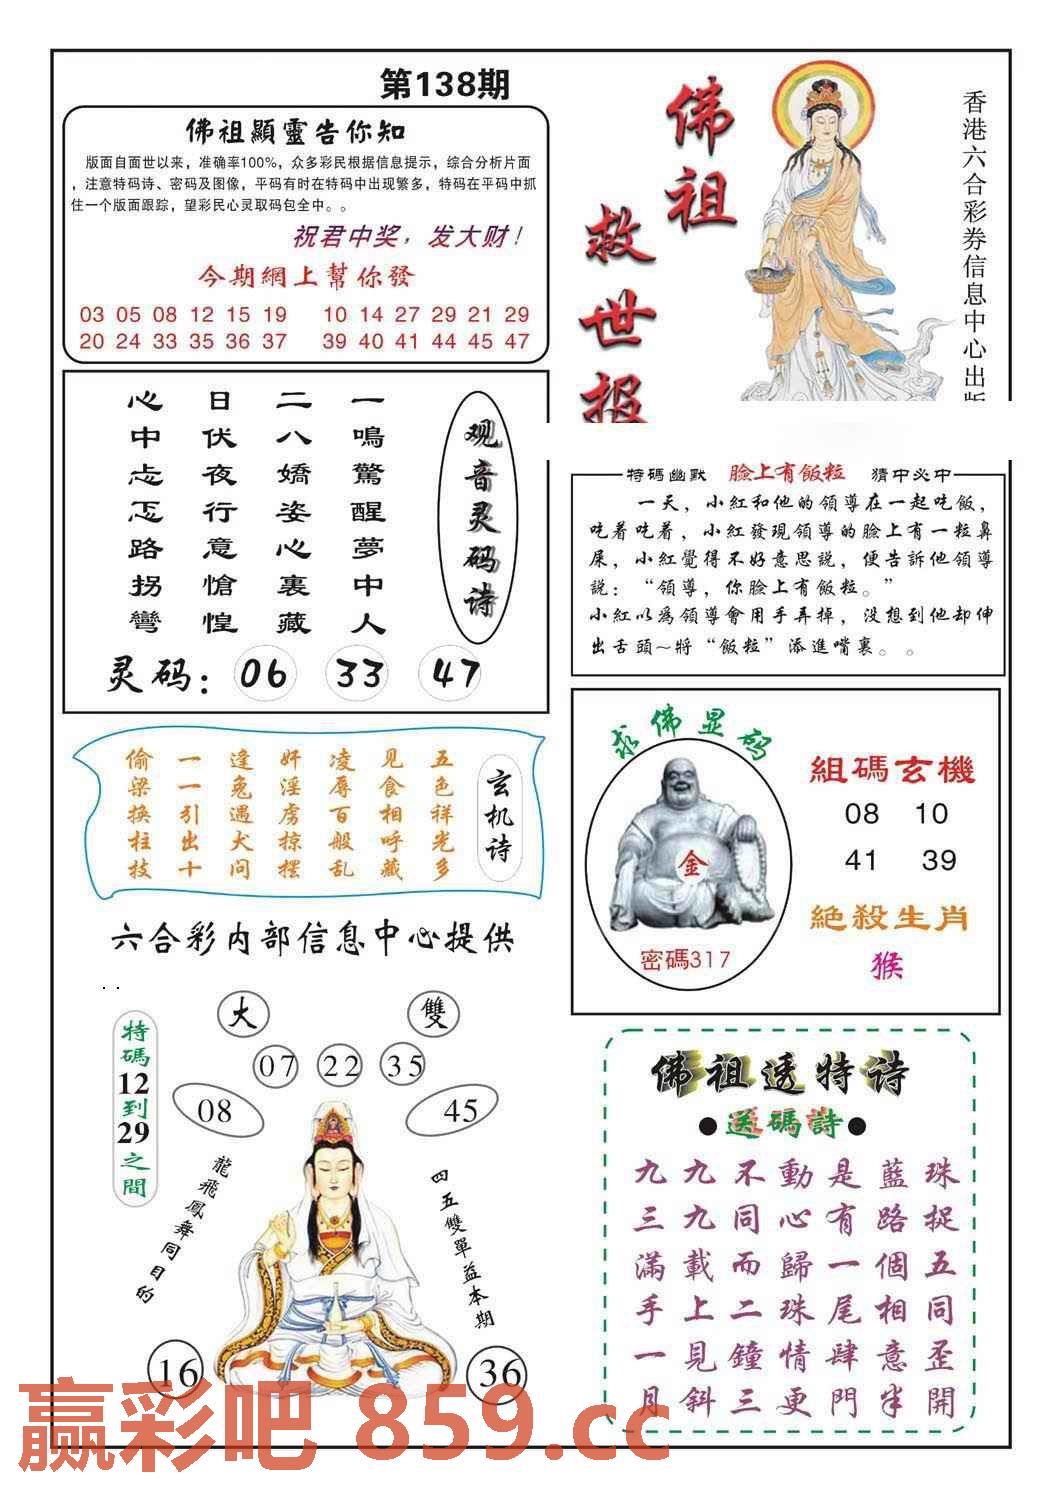 第138期
佛祖顯靈告你知
版面自面世以来，准确率100%，众多彩民根据信息提示，综合分析片面
，注意特码诗、密码及图像，平码有时在特码中出现繁多，特码在平码中抓
住一个版面跟踪，望彩民心灵取码包全中。。
祝君中奖，发大财！
今期網上幫你發
03 05 08 12 15 19 10 14 27 29 21 29
20 24 33 35 36 37 39 40 41 44 45 47
佛祖
救世报
香港六合彩券信息中心出版
观音灵码诗
一鳴驚醒夢中人
二八嬌姿心裏藏
日伏夜行意愴惶
心中忐忑路拐彎
灵码：06 33 47
特碼幽默 臉上有飯粒 猜中必中
一天，小紅和他的領導在一起吃飯，
吃着吃着，小紅發現領導的臉上有一粒鼻
屎，小紅覺得不好意思説，便告訴他領導
説：“領導，你臉上有飯粒。”
小紅以為領導會用手弄掉，没想到他却伸
出舌頭～将“飯粒”添進嘴裏。。
玄机诗
五色祥光多
见食相呼藏
凌辱百般乱
奸淫虏掠摆
逢兔遇犬问
一一引出十
偷梁换柱技
求佛显码
金
密碼317
組碼玄機
08 10
41 39
絕殺生肖
猴
六合彩内部信息中心提供
大 雙
07 22 35
08 45
特碼12到29之間
龍飛鳳舞同目的
四五雙單益本期
16 36
佛祖透特诗
●送碼詩●
九九不動是藍珠
三九同心有路捉
滿載而歸一個五
手上二珠尾相同
一見鐘情肆意歪
月斜三更門半開
赢彩吧 859.cc